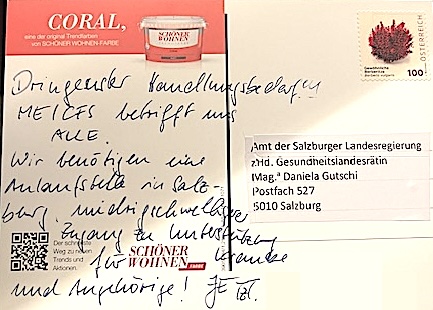 CORAL,
eine der original Trendfarben
von SCHÖNER WOHNEN-FARBE
SCHÖNER
WOHNEN
ÖSTERREICH
Gewöhnliche
Berberitze
Berberis vulgaris
100
Dringenster Handlungsbedarf!!!
ME/CFS betrifft uns
ALLE.
Wir benötigen eine
Anlaufstelle in Salz-
burg, niedrigschwelligen
Zugang zu Unterstützung
für Kranke
und Angehörige!
Amt der Salzburger Landesregierung
zHd. Gesundheitslandesrätin
Mag.ª Daniela Gutschi
Postfach 527
5010 Salzburg
Der schnellste
Weg zu neuen
Trends und
Aktionen.
SCHÖNER
WOHNEN
FARBE